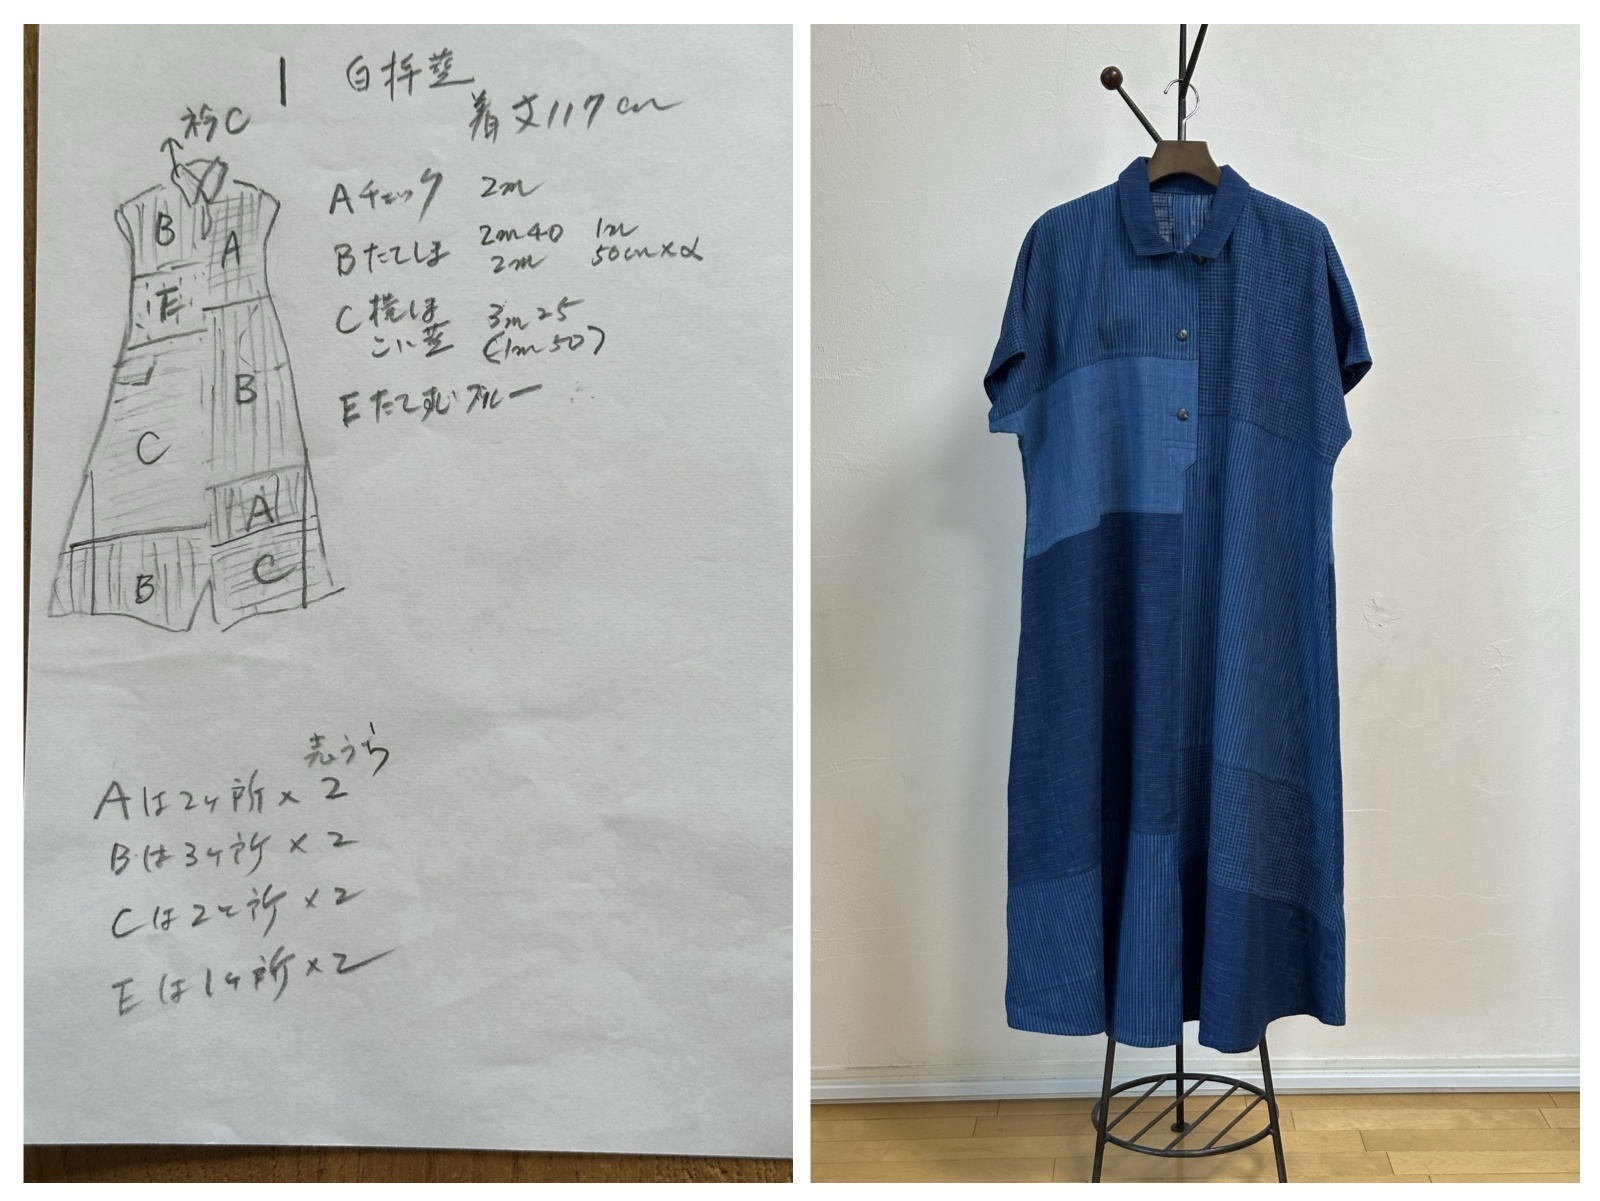 1
着丈117cm
衿C
Aチェック 2m
Bたてしま 2m40 1m
2m 50cm×α
C横しま 3m25
こい藍 (1m50)
Eたてすじブルー
B
A
E
B
C
A
C
B
Aは2ヶ所×2
Bは3ヶ所×2
Cは2ヶ所×2
Eは1ヶ所×2